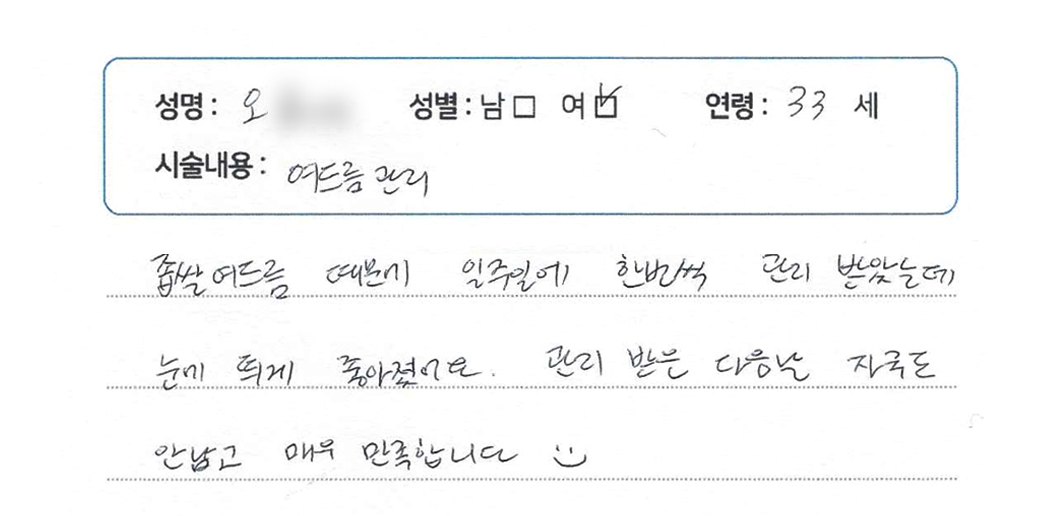 성명 : 오 성별 : 남 □ 여 ☑ 연령 : 33 세
시술내용 : 여드름 관리
좁쌀여드름 때문에 일주일에 한번씩 관리 받았는데
눈에 띄게 좋아졌어요. 관리 받은 다음날 자국도
안남고 매우 만족합니다 :)